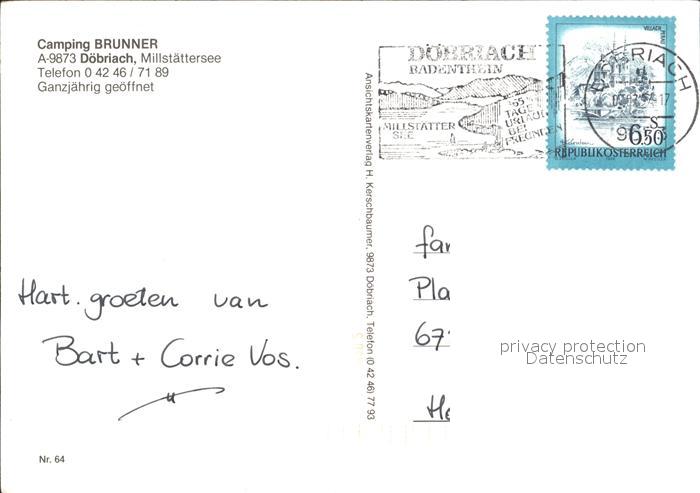 Camping BRUNNER
A-9873 Döbriach, Millstättersee
Telefon 0 42 46 / 71 89
Ganzjährig geöffnet
DÖBRIACH
RADENTHEIN
MILLSTÄTTER
SEE
365
TAGE
URLAUB
BEI
FREUNDEN
VILLACH
DÖBRIACH
S
6.50
REPUBLIK ÖSTERREICH
Ansichtskartenverlag H. Kerschbaumer, 9873 Döbriach, Telefon (0 42 46) 77 93
Hart. groeten van
Bart + Corrie Vos.
fa
Pla
67
He
privacy protection
Datenschutz
Nr. 64